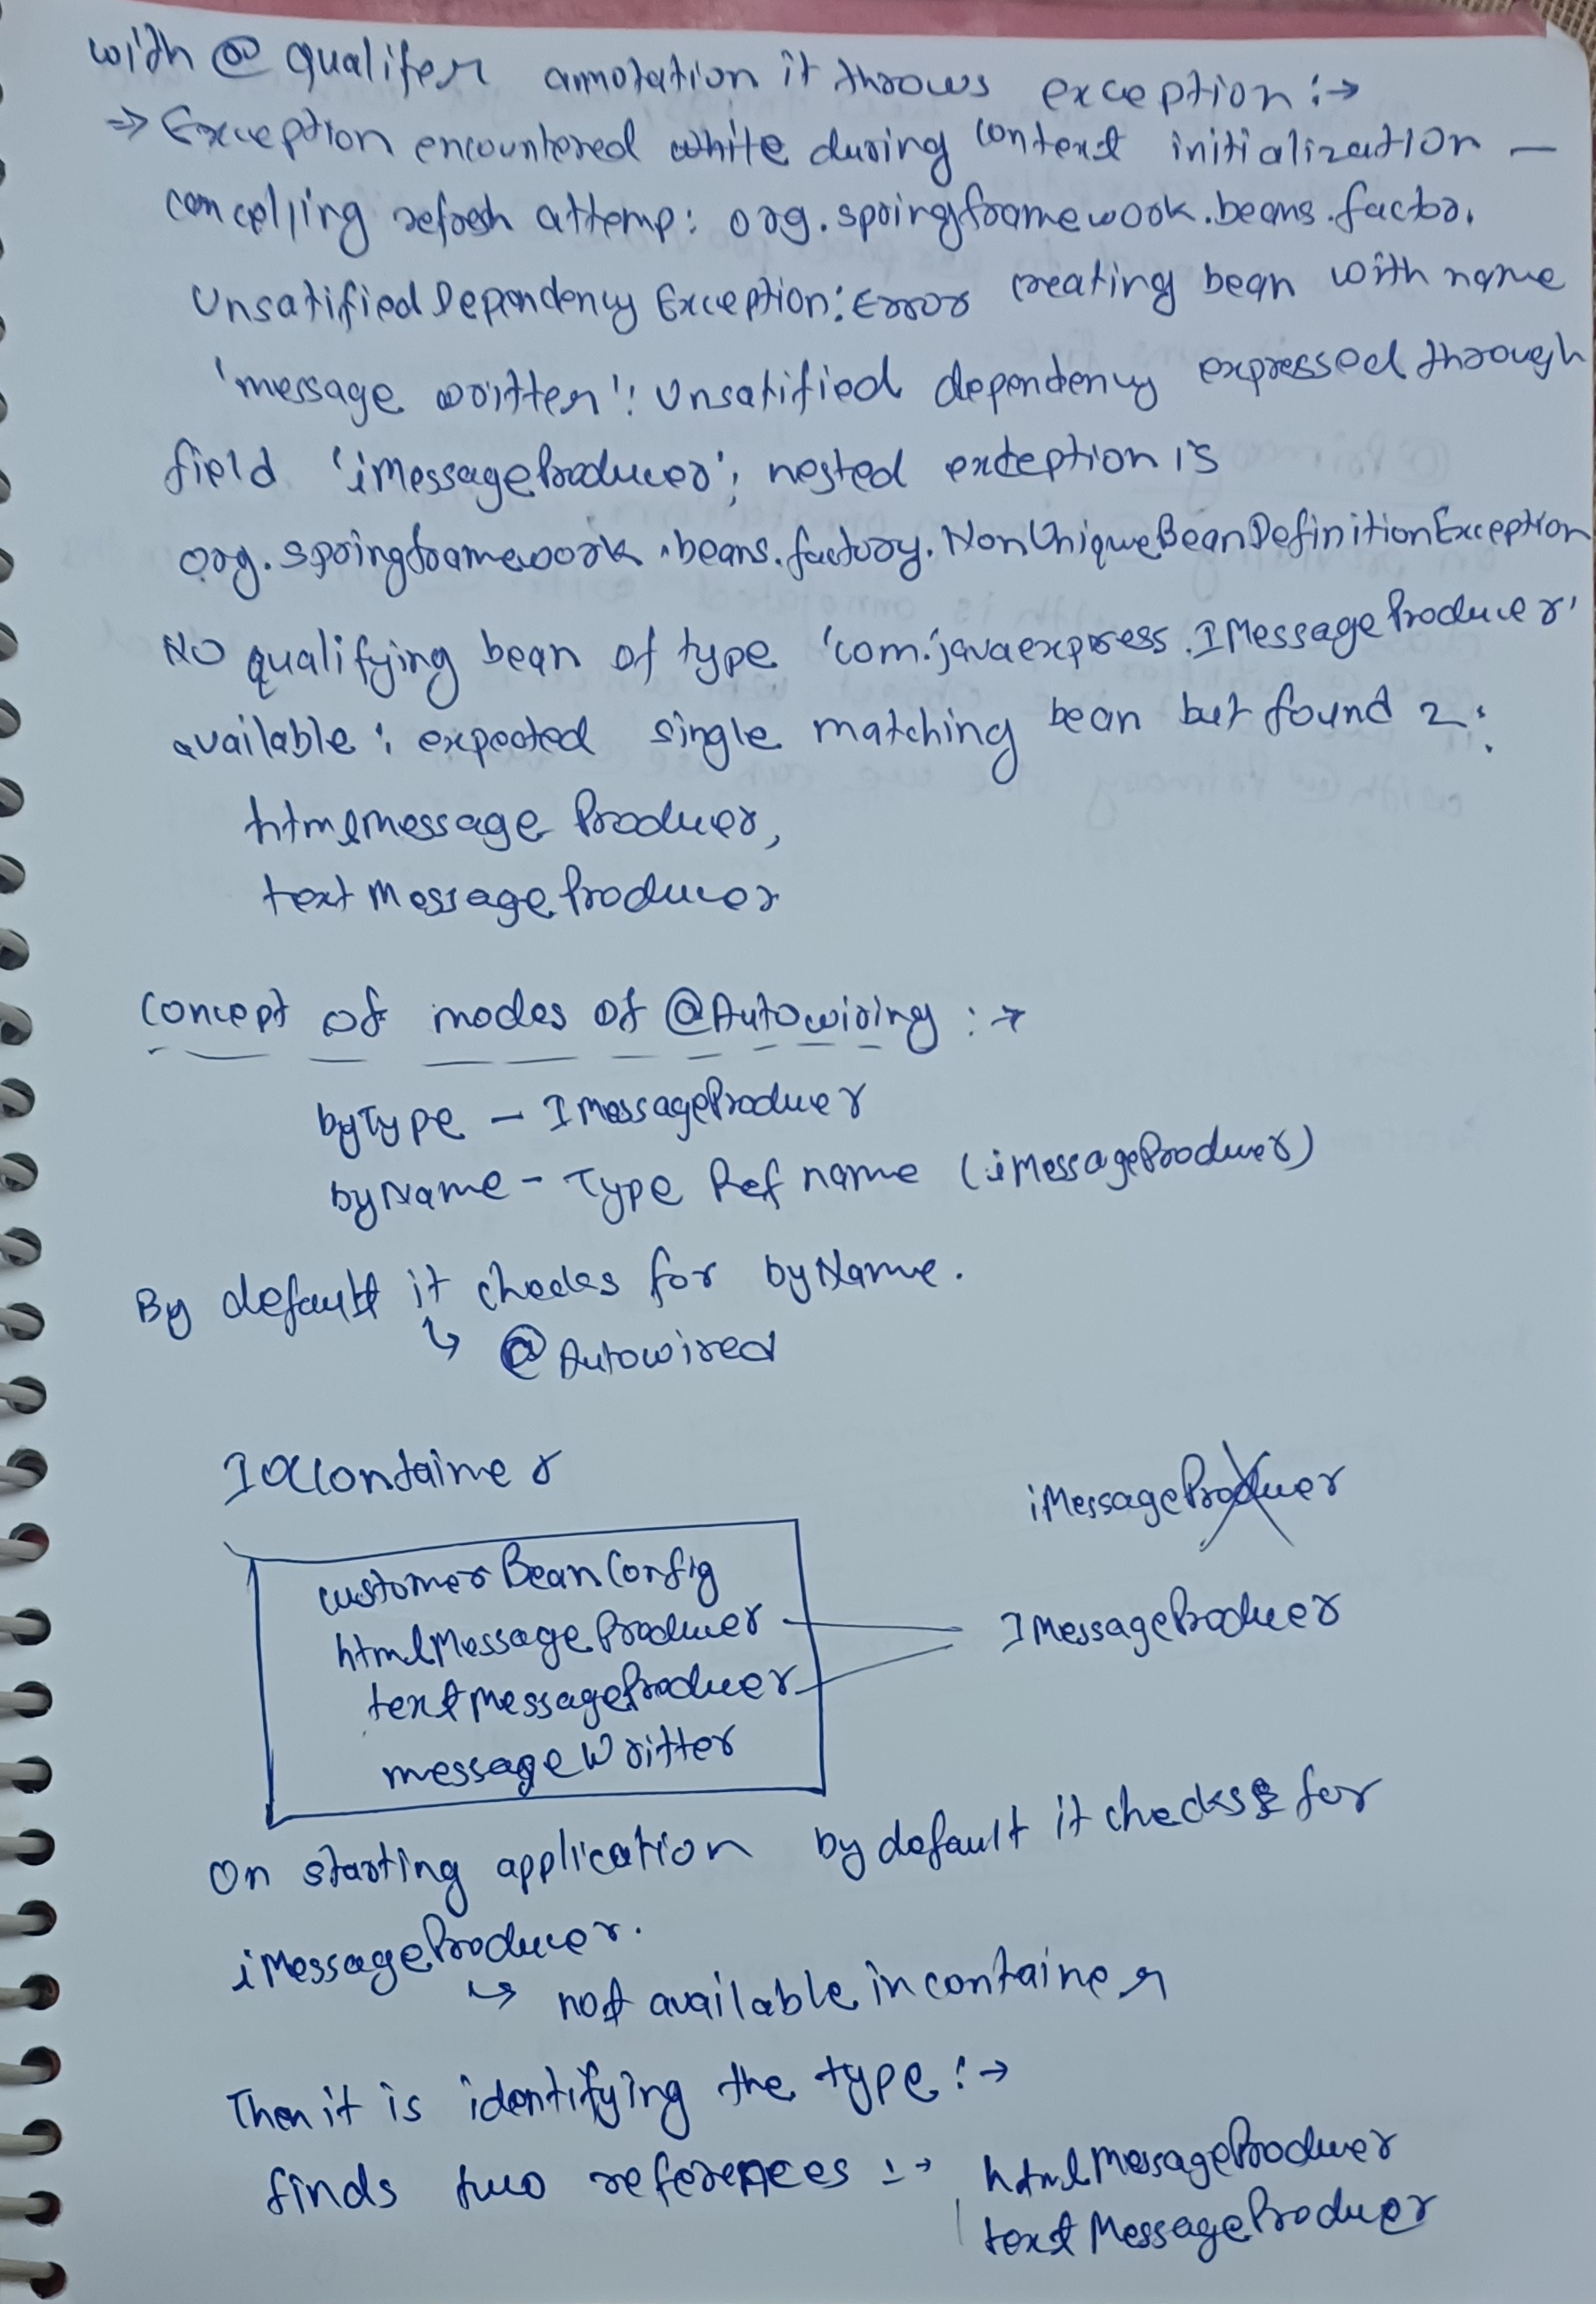 with @ qualifer annotation it throws exception :→
⇒ Exception encountered white during context initialization –
concelling refresh attemp: org.springframework.beans.facto.
Unsatified Dependency Exception: Error creating bean with name
'message written': Unsatified dependency expressed through
field 'iMessageProducer'; nested exception is
org.springframework.beans.factory.NonUniqueBeanDefinitionException
No qualifying bean of type 'com.javaexpress.IMessageProducer'
available: expected single matching bean but found 2:
htmlmessage Producer,
textMessageProducer
Concept of modes of @Autowiring :→
byType – IMessageProducer
byName – Type Ref name (iMessageProducer)
By default it checks for byName.
↳ @Autowired
IOCContainer
iMessageProducer
customerBeanConfig
htmlMessageProducer
IMessageProducer
textMessageProducer
messageWritter
On starting application by default it checks for
iMessageProducer.
↳ not available in container
Then it is identifying the type :→
finds two references :→ htmlMessageProducer
textMessageProducer